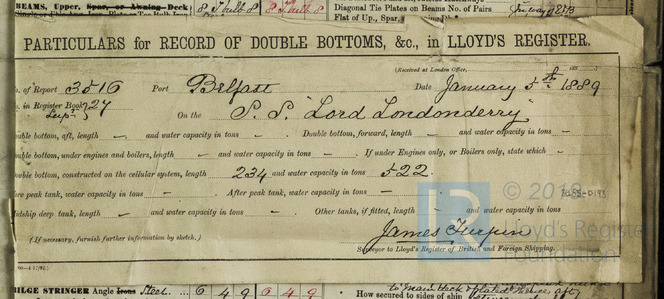 BEAMS, Upper, Spar, or Awning Deck
Diagonal Tie Plates on Beams No. of Pairs
Flat of Up., Spar,
PARTICULARS for RECORD OF DOUBLE BOTTOMS, &c., in LLOYD'S REGISTER.
(Received at London Office,
o. of Report 3516 Port Belfast Date January 5th 1889
o. in Register Book 27
Supt.
On the S.S. "Lord Londonderry"
ouble bottom, aft, length — and water capacity in tons — Double bottom, forward, length — and water capacity in tons —
ouble bottom, under engines and boilers, length — and water capacity in tons — If under Engines only, or Boilers only, state which —
ouble bottom, constructed on the cellular system, length 234 and water capacity in tons 522.
ore peak tank, water capacity in tons — After peak tank, water capacity in tons —
idship deep tank, length — and water capacity in tons — Other tanks, if fitted, length — and water capacity in tons
James Turpin
(If necessary, furnish further information by sketch.)
Surveyor to Lloyd's Register of British and Foreign Shipping.
© 201
Lloyd's Register
Foundation
BILGE STRINGER Angle Irons Steel 6 4 9 6 4 9
How secured to sides of ship